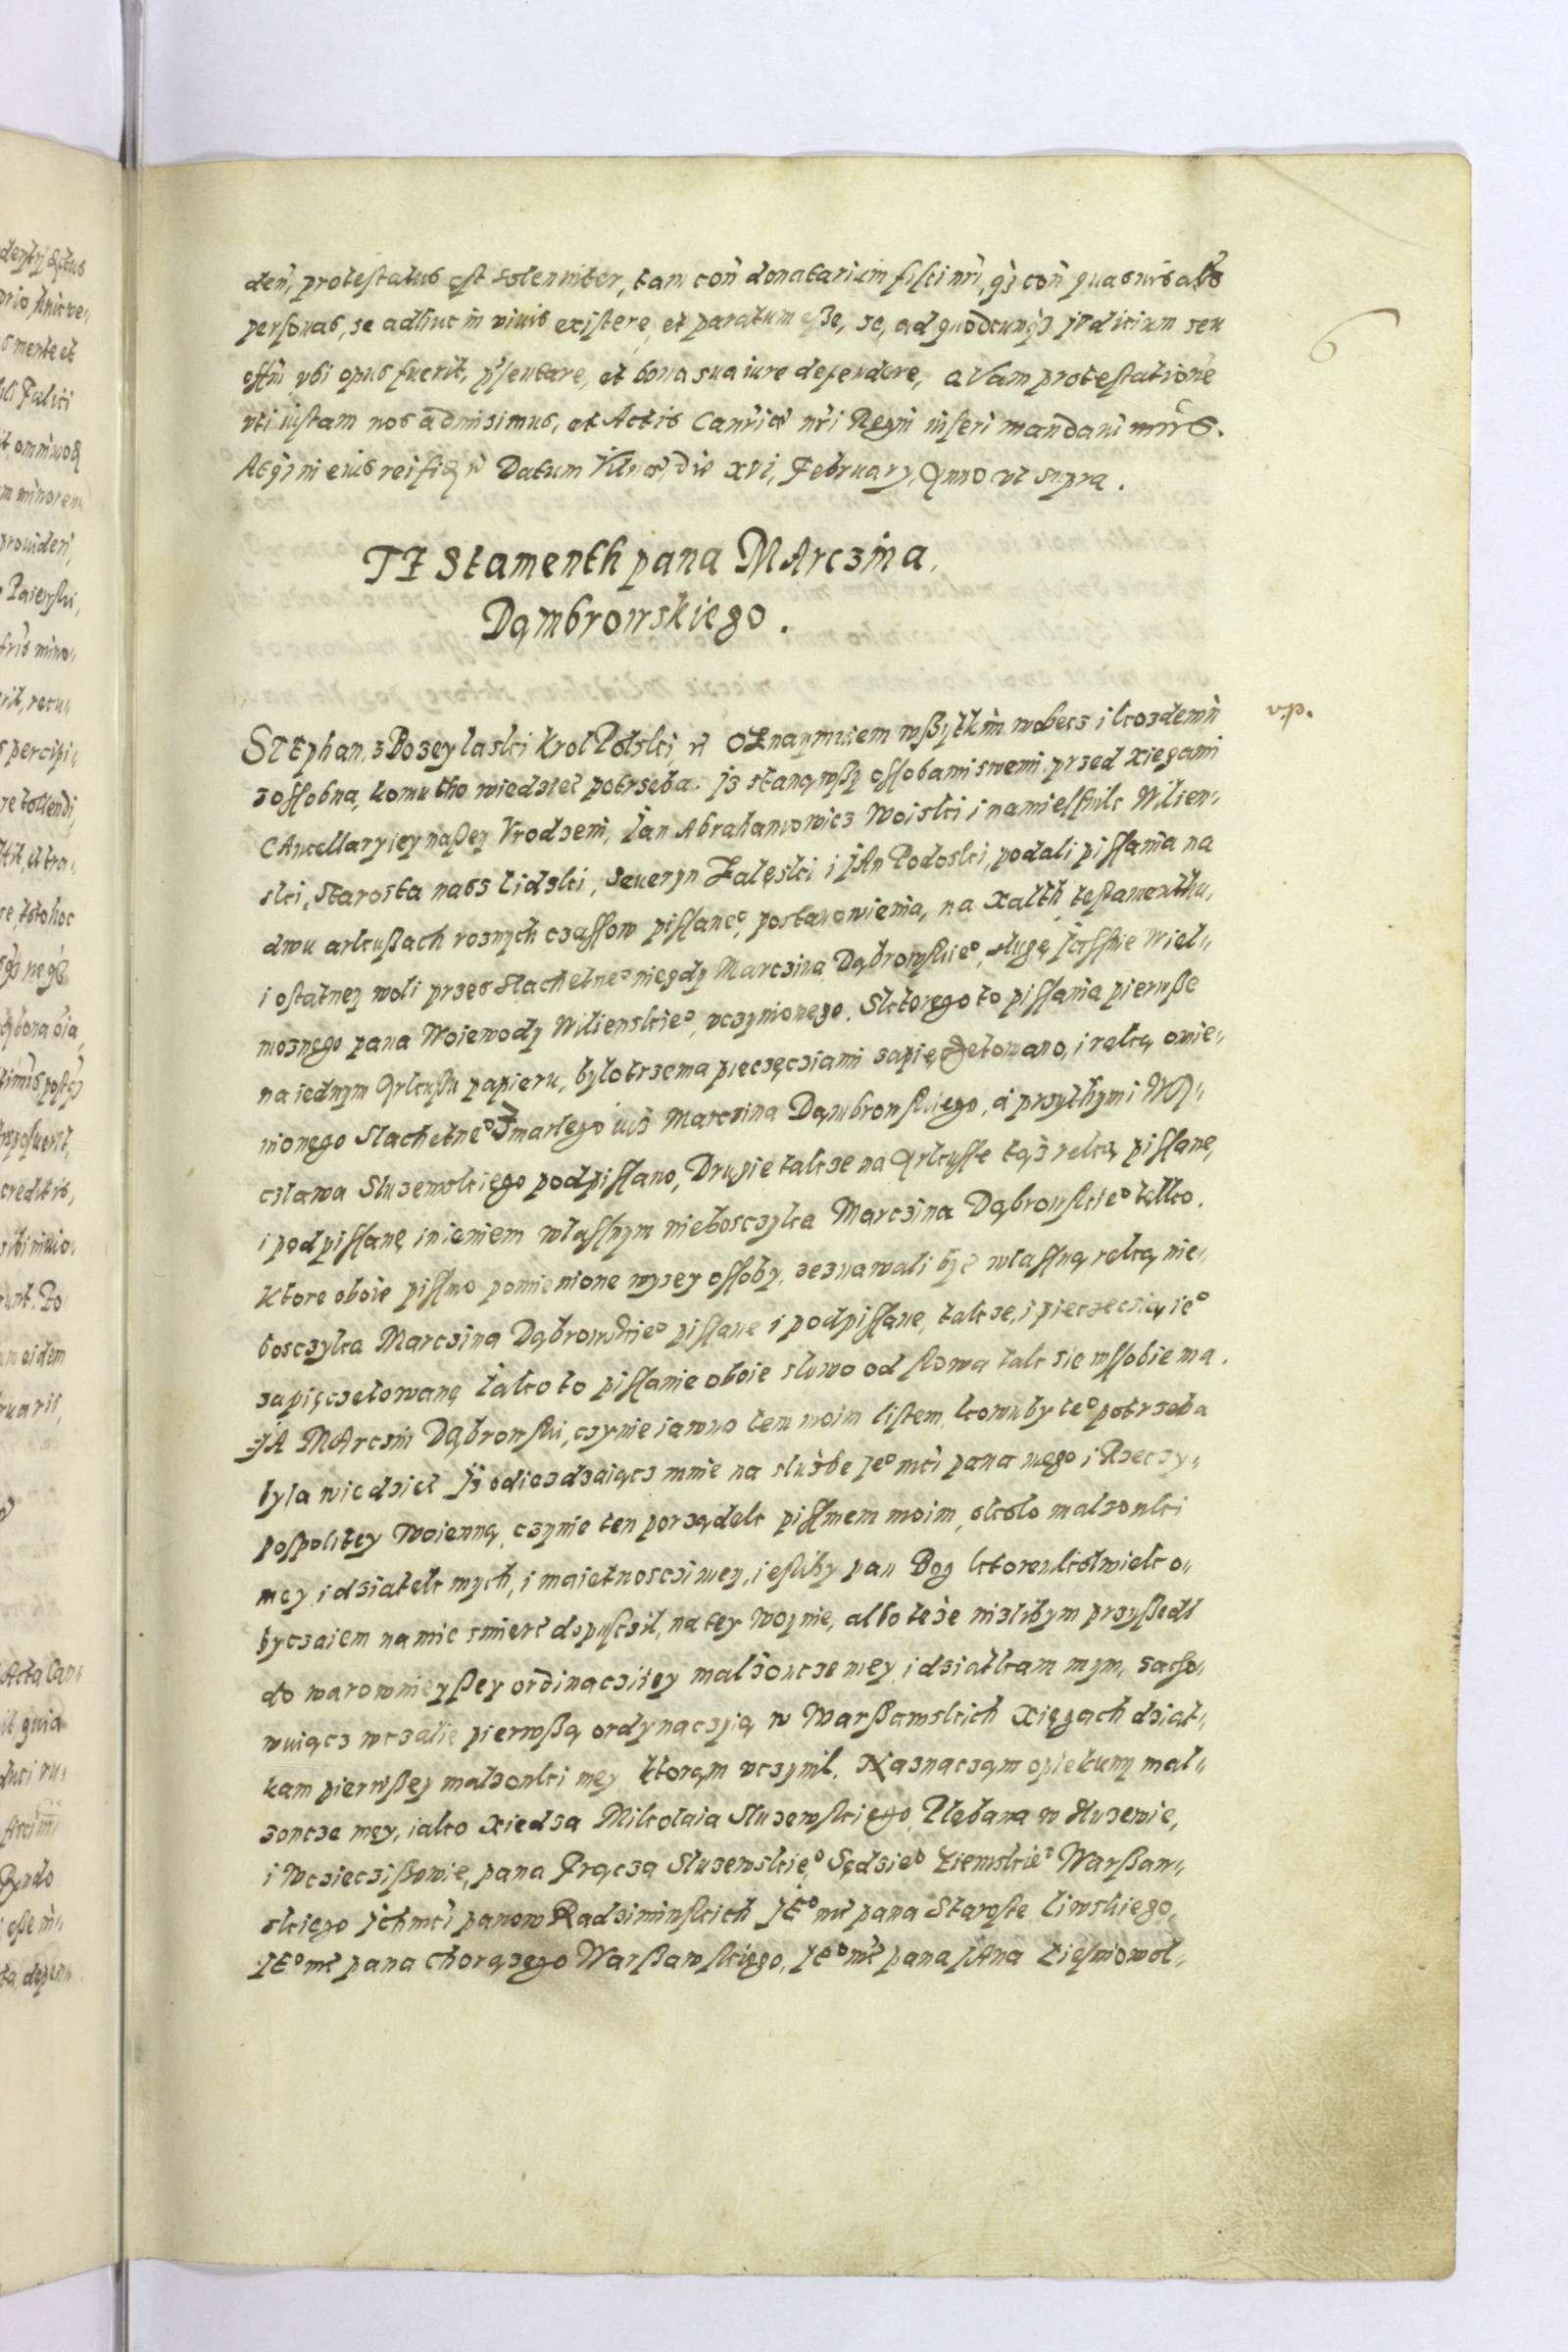 6
den, protestatus est solenniter, tam con donatarium fisci nri, qz con quasuis alias
personas, se adhuc in viuis existere, et paratum esse, se, ad quodcunqz judicium seu
offm vbi opus fuerit, psentare, et bona sua iure defendere, qvam protestatione
vti iustam nos admisimus, et Actis Canrice nri Regni inseri mandauimus.
Atqz in eius rei fidem Datum Vilnæ, die xvi, February, Anno vt supra.
TEstamenth pana MArczina
Dąmbrowskiego.
STEphan, z Bozey laski krol Polski, etc OZnaymuiem wßyłkim wobecz i kozdemu
zossobna, komu tho wiedzieć potrzeba. Jz stanąwßy ossobami swemi przed xiegami
CAncellaryiey naßey Vrodzeni, Jan Abrahamowicz Woiski i namiesnik Wilien„
ski, Starosta nasz Lidski, Seueryn Zalęski i JAn Podoski, podali pissania na
dwu arkußach roznych czassow pissaneo, postanowienia, na xalth testamenthu,
i ostatney woli przes Slachetneo niegdy Marczina Dąbrowskieo, slugę Jassnie Wiel„
moznego pana Woiewody Wilienskieo, vczynionego. Sktorego to pissania pierwße
na iednym Arkußu papieru, bylo trzema pieczęcziami zapięczętowano, i ręką omie„
nionego Slachetneo Zmarlego iuż Marczina Dąmbrowskiego, á przythym i Wą„
czlawa Sluzewskiego podpissano, Drugie takze na Arkusse tąż reką pissane,
i podpissanę imieniem wlassnym nieboszczyka Marczina Dąbrowskieo telko.
Ktore oboie pissmo pomienione wyzey ossoby, zeznawali być wlassną ręką nie„
boszczyka Marczina Dąbrowskieo pissane i podpissane, takze, i pieczecią ieo
zapięczetowanę Jako to pissanie oboie slowo od slowa tak sie wssobie ma.
JA MArczin DĄbrowski, czynie iawno tem moim listem, komuby teo potrzeba
byla wiedzieć Jż odiezdzaiącz mnie na służbe Jeo mći pana mego i Rzeczy„
pospolitey Woienną, czynie ten porządek pissmem moim, okolo malzonki
mey i dziatek mych, i maietnosczi mey, iesliby pan Bog ktoremkolwiek o„
byczaiem na mie smierć dopusczil, na tey Woynie, albo teże nizlibym przyßedl
do warownieyßey ordinacziiey malżonce mey i dziatkam mym, zacho„
wuiącz wczalie pierwßą ordynaczyią w Warßawskich xięgach dziat„
kam pierwßey malzonki mey, ktorąm vczynil. Naznaczam opiekuny mal„
zonce mey, iako xiedza Mikolaia Sluzewskiego, Plebana w Sluzewie,
i Wczieczißowie, pana Frącza Sluzewskieo, Sędzieo Ziemskieo Warßaw„
skiego Jchmći panow Radziminskich JEo mć pana Staroste Liwskiego,
JEo mć pana Chorązego Warßawskiego, JEo mć pana JAna Liesniowol„